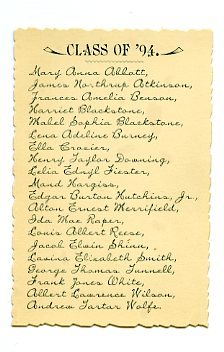 CLASS OF '94.
Mary Anna Abbott,
James Northrup Atkinson,
Frances Amelia Benson,
Harriet Blackstone,
Mabel Sophia Blackstone,
Lena Adeline Burney,
Ella Crozier,
Henry Taylor Downing,
Lelia Ednyl Fiester,
Maud Hargiss,
Edgar Burton Hutchins, Jr.,
Alton Ernest Merrifield,
Ida Mae Raper,
Louis Albert Reese,
Jacob Elwin Shinn,
Lavina Elizabeth Smith,
George Thomas Tunnell,
Frank Jones White,
Albert Lawrence Wilson,
Andrew Tartar Wolfe.